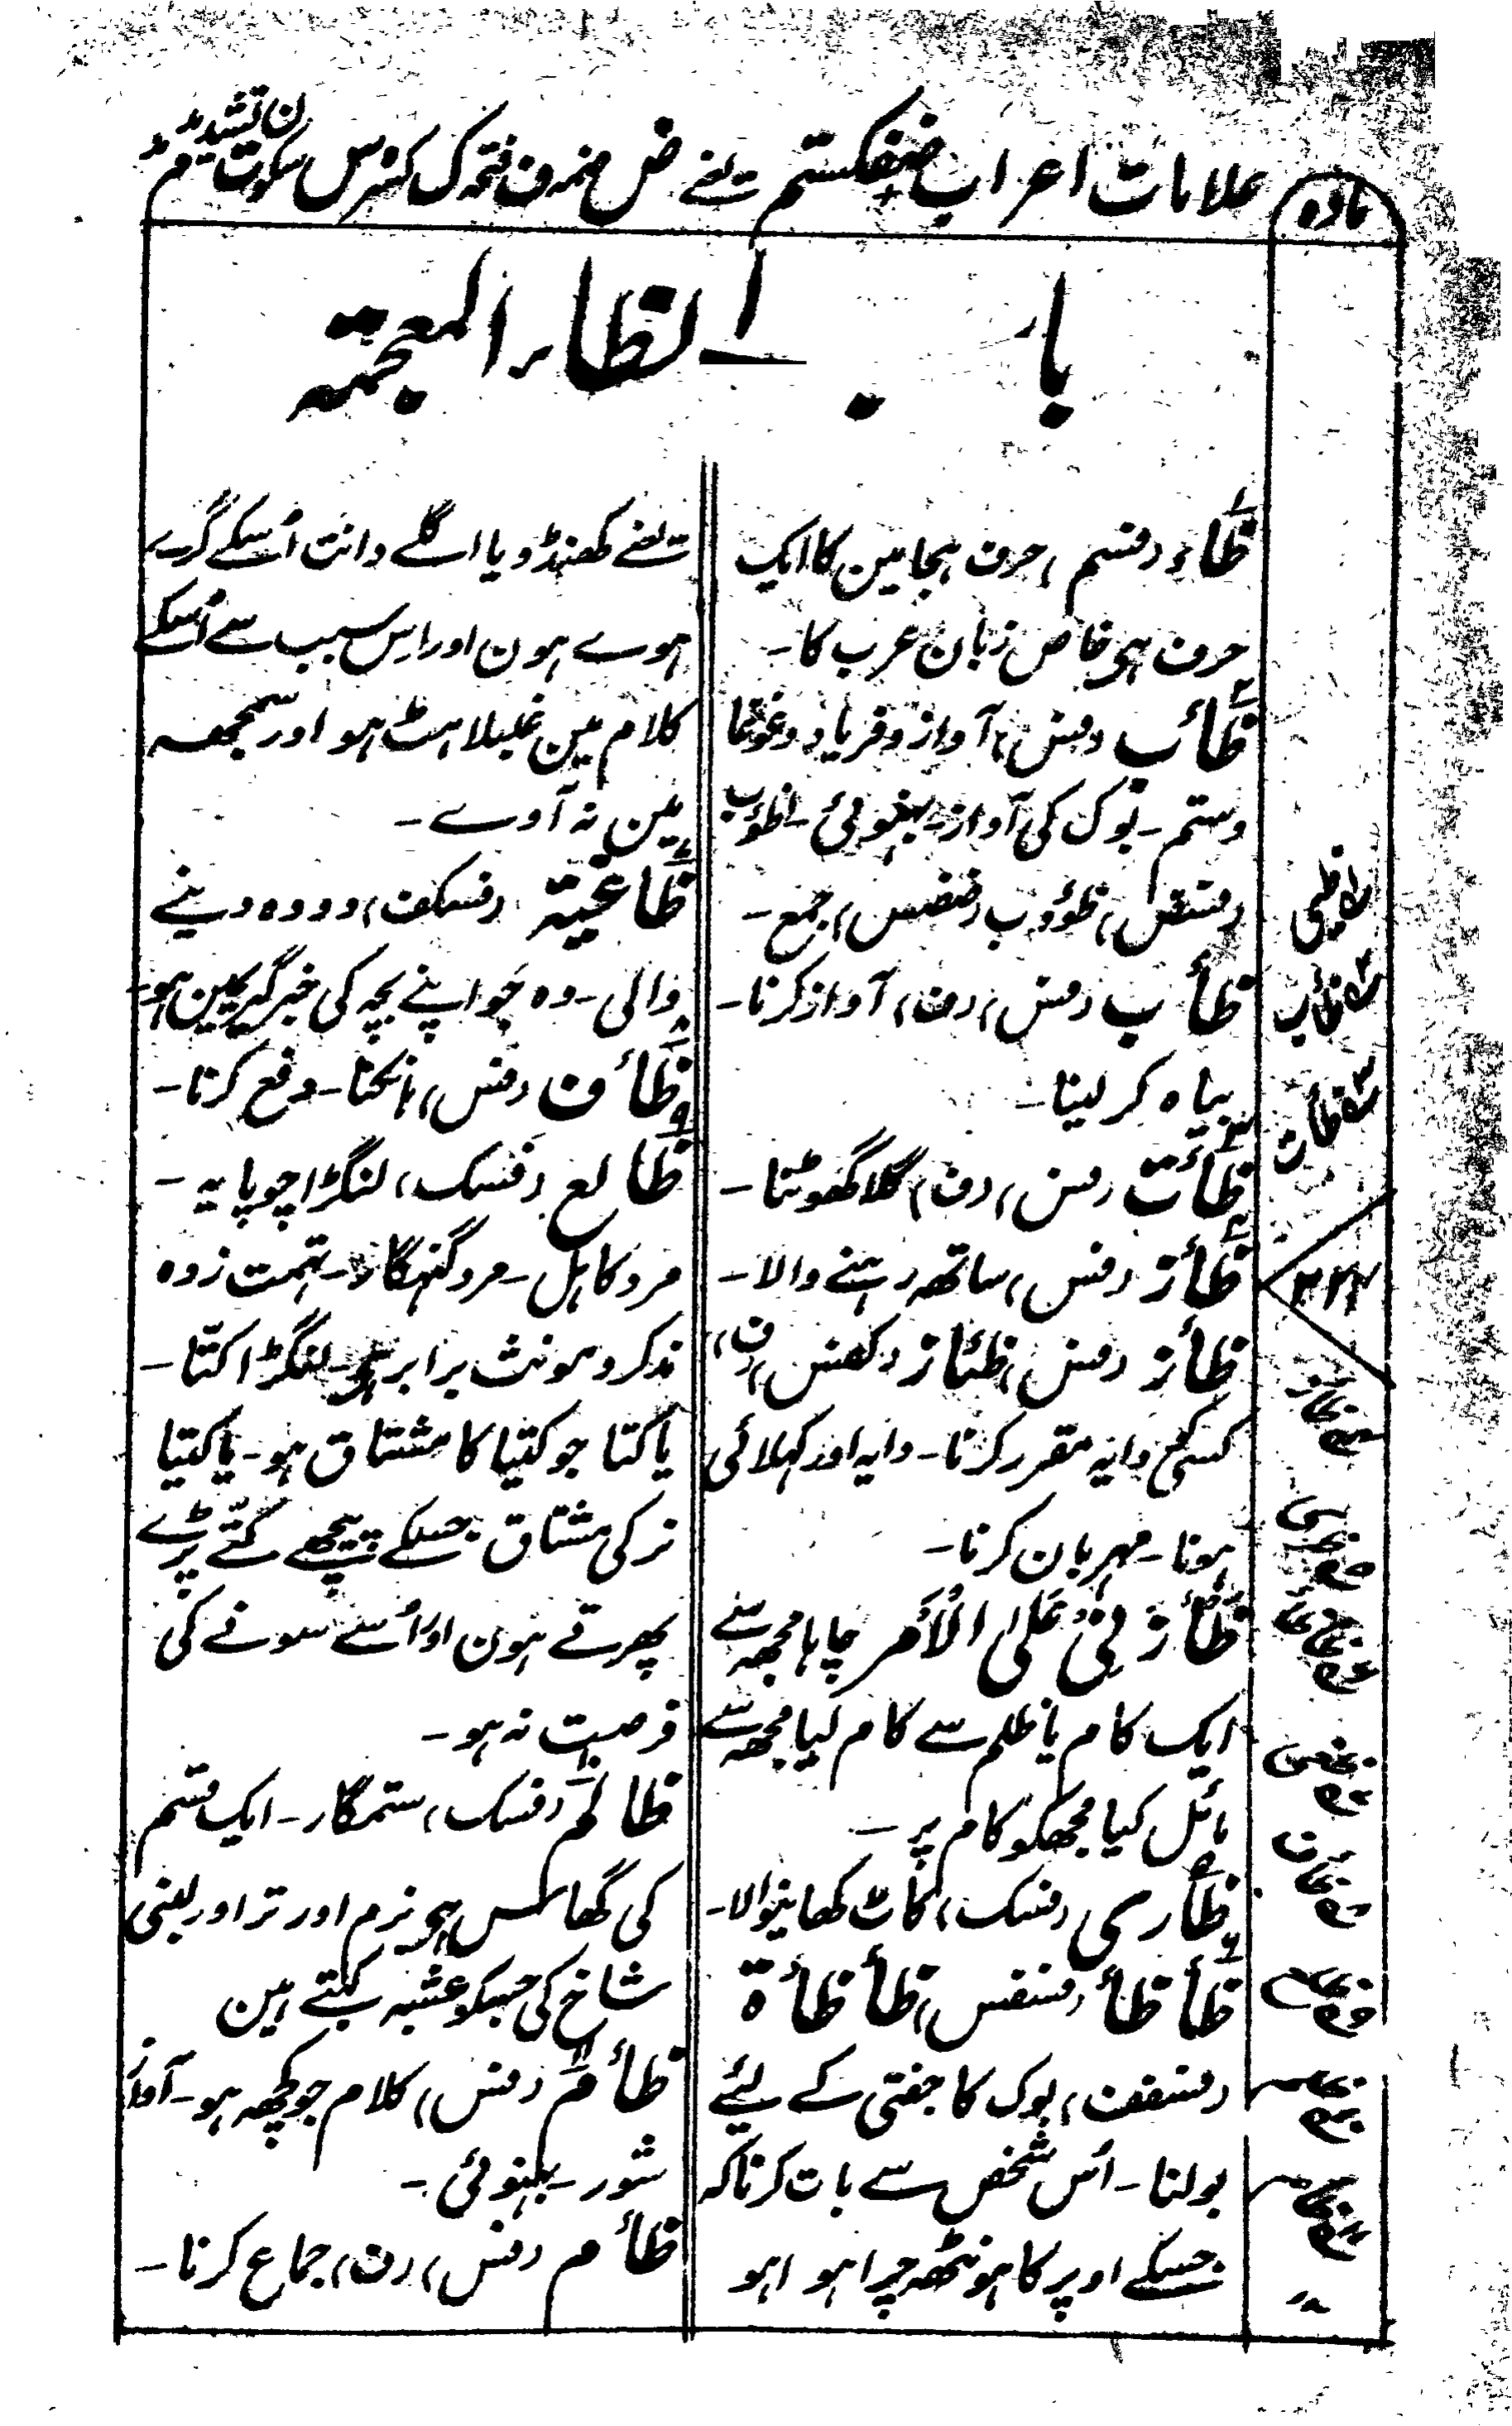 علامات اعراب ضفکستم یعنے ض ضمہ ف فتحہ ک کسرہ س سکون ت تشدید م مد
مادہ
باب الظاء المعجمۃ
ظَاء (فسم) حرف ہجا مین کا ایک
حرف ہی خاص زبان عرب کا۔
ظَائب (فس) آواز و فریاد و غوغا
و ستم۔ بوک کی آواز۔ بہنوئی۔ اظؤب
ظؤوب جمع۔
ظأب (فس) (ف) آواز کرنا۔
بیاہ کر لینا۔
ظَأت (فس) (ف) گلا گھوٹنا۔
ظَأر (فس) ساتھ رہنے والا۔
ظأر (فس) ظئار (کفس) (ف)
کسیکی دایہ مقرر کرنا۔ دایہ اور کہلائی
ہونا۔ مہربان کرنا۔
ظَأرَنِیْ عَلَی الْاَمْرِ چاہا مجھ سے
ایک کام یا ظلم سے کام لیا مجھ سے
مائل کیا مجھکو کام پر۔
ظَأری (فسک) کاٹ کھانیوالا۔
ظَأظأ (فسفس) ظأظأۃ
(فسففت) بوک کا جفتی کے لئے
بولنا۔ اُس شخص سے بات کرنا کہ
جسکے اوپر کا ہونٹھ چرا ہوا ہو
یعنے کھنڈو یا اگلے دانت اُسکے گرے
ہوے ہون اور اِس سبب سے اُسکے
کلام مین غلبلاہٹ ہو اور سمجھ
مین نہ آوے۔
ظَاعِیَۃ (فسکف) دودہ دینے
والی۔ وہ جو اپنے بچہ کی خبرگیر مین ہو۔
ظَأف (فس) ہانکنا۔ دفع کرنا۔
ظَالع (فسک) لنگڑا چوپایہ۔
مرد کاہل۔ مرد گنہگار۔ تہمت زدہ
مذکر و مونث برابر ہی۔ لنگڑا کتّا۔
یا کتا جو کتیا کا مشتاق ہو۔ یا کتیا
نر کی مشتاق جسکے پیچھے کتّے پڑے
پھرتے ہون اور اُسے سونے کی
فرصت نہ ہو۔
ظَالم (فسک) ستمگار۔ ایک قسم
کی گھاس ہی نرم اور تر اور لنبی
شاخ کی جسکو عشبہ کہتے ہین
ظَأم (فس) کلام جو کچھ ہو۔ آواز
شور۔ بہنوئی۔
ظأم (فس) (ف) جماع کرنا۔